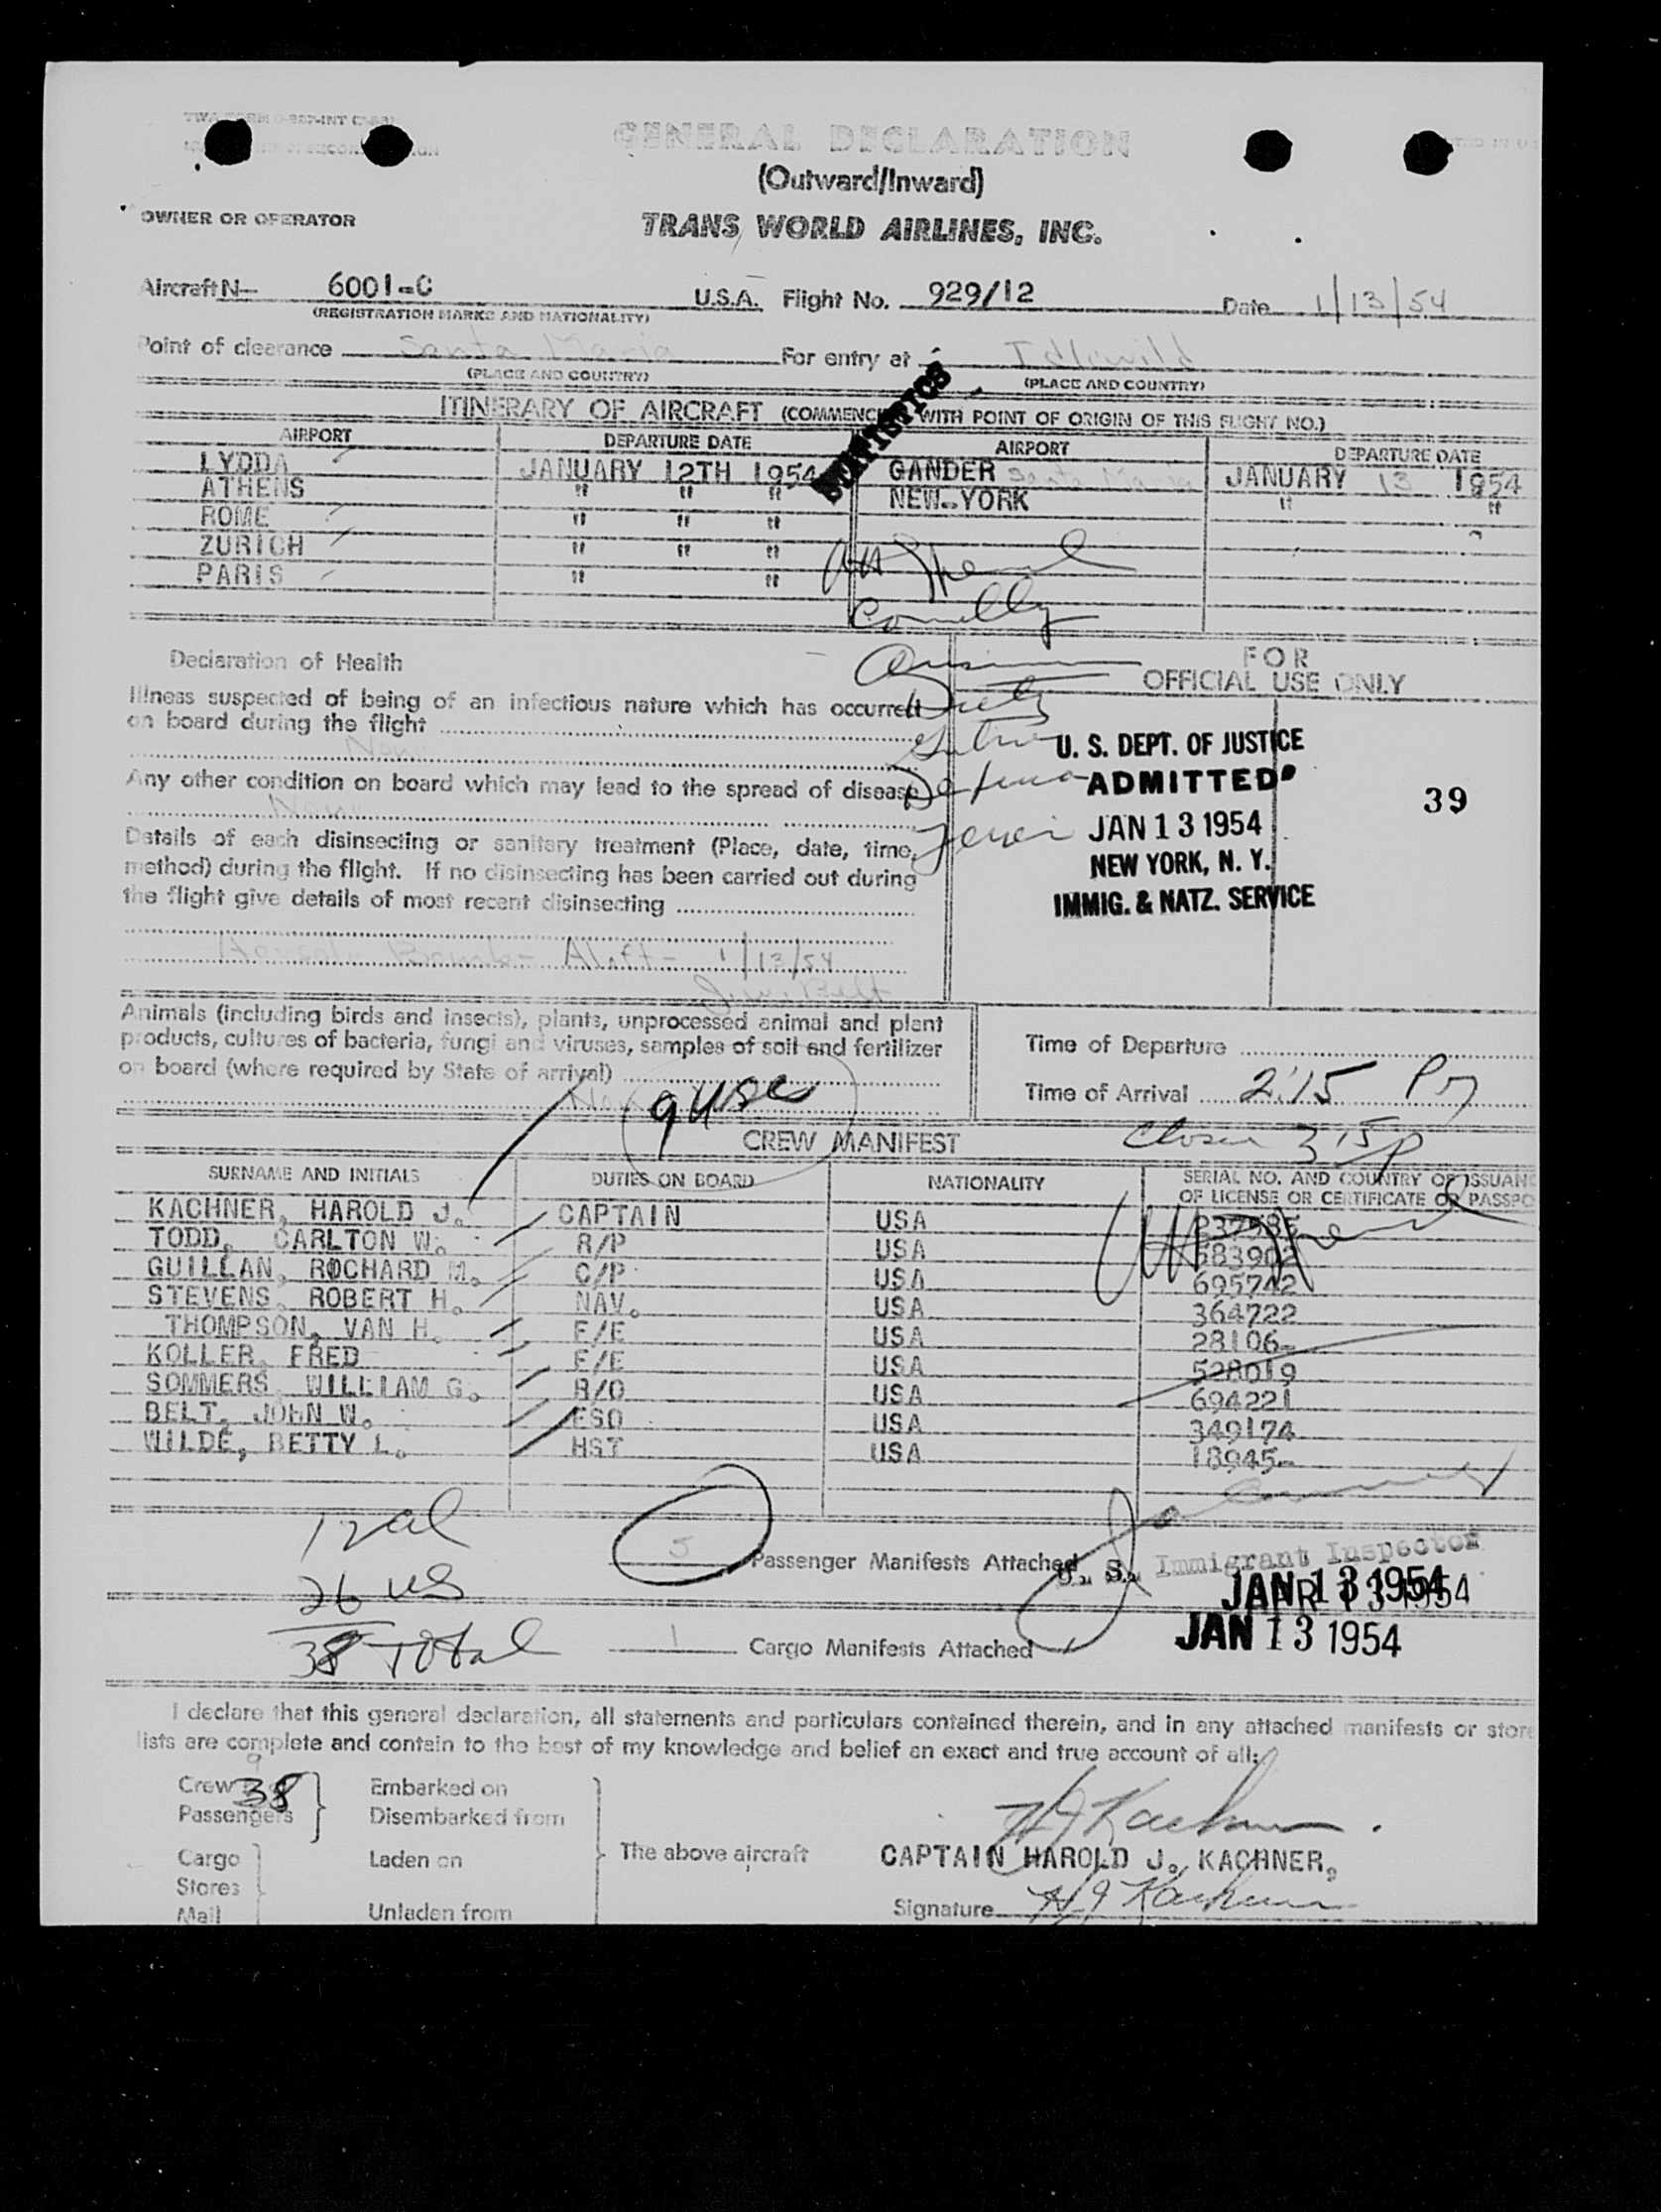 GENERAL DECLARATION
(Outward/Inward)
OWNER OR OPERATOR
TRANS WORLD AIRLINES, INC.
Aircraft N- 6001-C U.S.A. Flight No. 929/12 Date 1/13/54
(REGISTRATION MARKS AND NATIONALITY)
Point of clearance Santa Maria For entry at Idlewild
(PLACE AND COUNTRY) (PLACE AND COUNTRY)
STATISTICS
ITINERARY OF AIRCRAFT (COMMENCING WITH POINT OF ORIGIN OF THIS FLIGHT NO.)
AIRPORT DEPARTURE DATE AIRPORT DEPARTURE DATE
LYDDA JANUARY 12TH 1954 GANDER Santa Maria JANUARY 13 1954
ATHENS " " " NEW-YORK " "
ROME " " "
ZURICH " " "
PARIS " "
Connelly
Declaration of Health
FOR
OFFICIAL USE ONLY
Illness suspected of being of an infectious nature which has occurred
on board during the flight
None
Any other condition on board which may lead to the spread of disease
None
Details of each disinsecting or sanitary treatment (Place, date, time,
method) during the flight. If no disinsecting has been carried out during
the flight give details of most recent disinsecting
Aerosol Bomb - Aloft - 1/13/54
U. S. DEPT. OF JUSTICE
ADMITTED
JAN 13 1954
NEW YORK, N. Y.
IMMIG. & NATZ. SERVICE
39
Animals (including birds and insects), plants, unprocessed animal and plant
products, cultures of bacteria, fungi and viruses, samples of soil and fertilizer
on board (where required by State of arrival)
None
Time of Departure
Time of Arrival 2:15 P
9 USC
3 15 P
CREW MANIFEST
SURNAME AND INITIALS DUTIES ON BOARD NATIONALITY SERIAL NO. AND COUNTRY OF ISSUANC
OF LICENSE OR CERTIFICATE OR PASSPO
KACHNER, HAROLD J. CAPTAIN USA
TODD, CARLTON W. R/P USA
GUILLAN, ROCHARD M. C/P USA 695742
STEVENS, ROBERT H. NAV. USA 364722
THOMPSON, VAN H. F/E USA 28106-
KOLLER, FRED F/E USA 528019
SOMMERS, WILLIAM G. R/O USA 694221
BELT, JOHN W. FSO USA 349174
WILDE, BETTY L. HST USA 18945-
12 al
26 US
38 Total
5 Passenger Manifests Attached
U. S. Immigrant Inspector
JAN 13 1954
JAN 13 1954
1 Cargo Manifests Attached
I declare that this general declaration, all statements and particulars contained therein, and in any attached manifests or store
lists are complete and contain to the best of my knowledge and belief an exact and true account of all:
Crew 9
Passengers 38
Embarked on
Disembarked from
Cargo
Stores
Mail
Laden on
Unladen from
The above aircraft
H J Kachner
CAPTAIN HAROLD J. KACHNER.
Signature H J Kachner